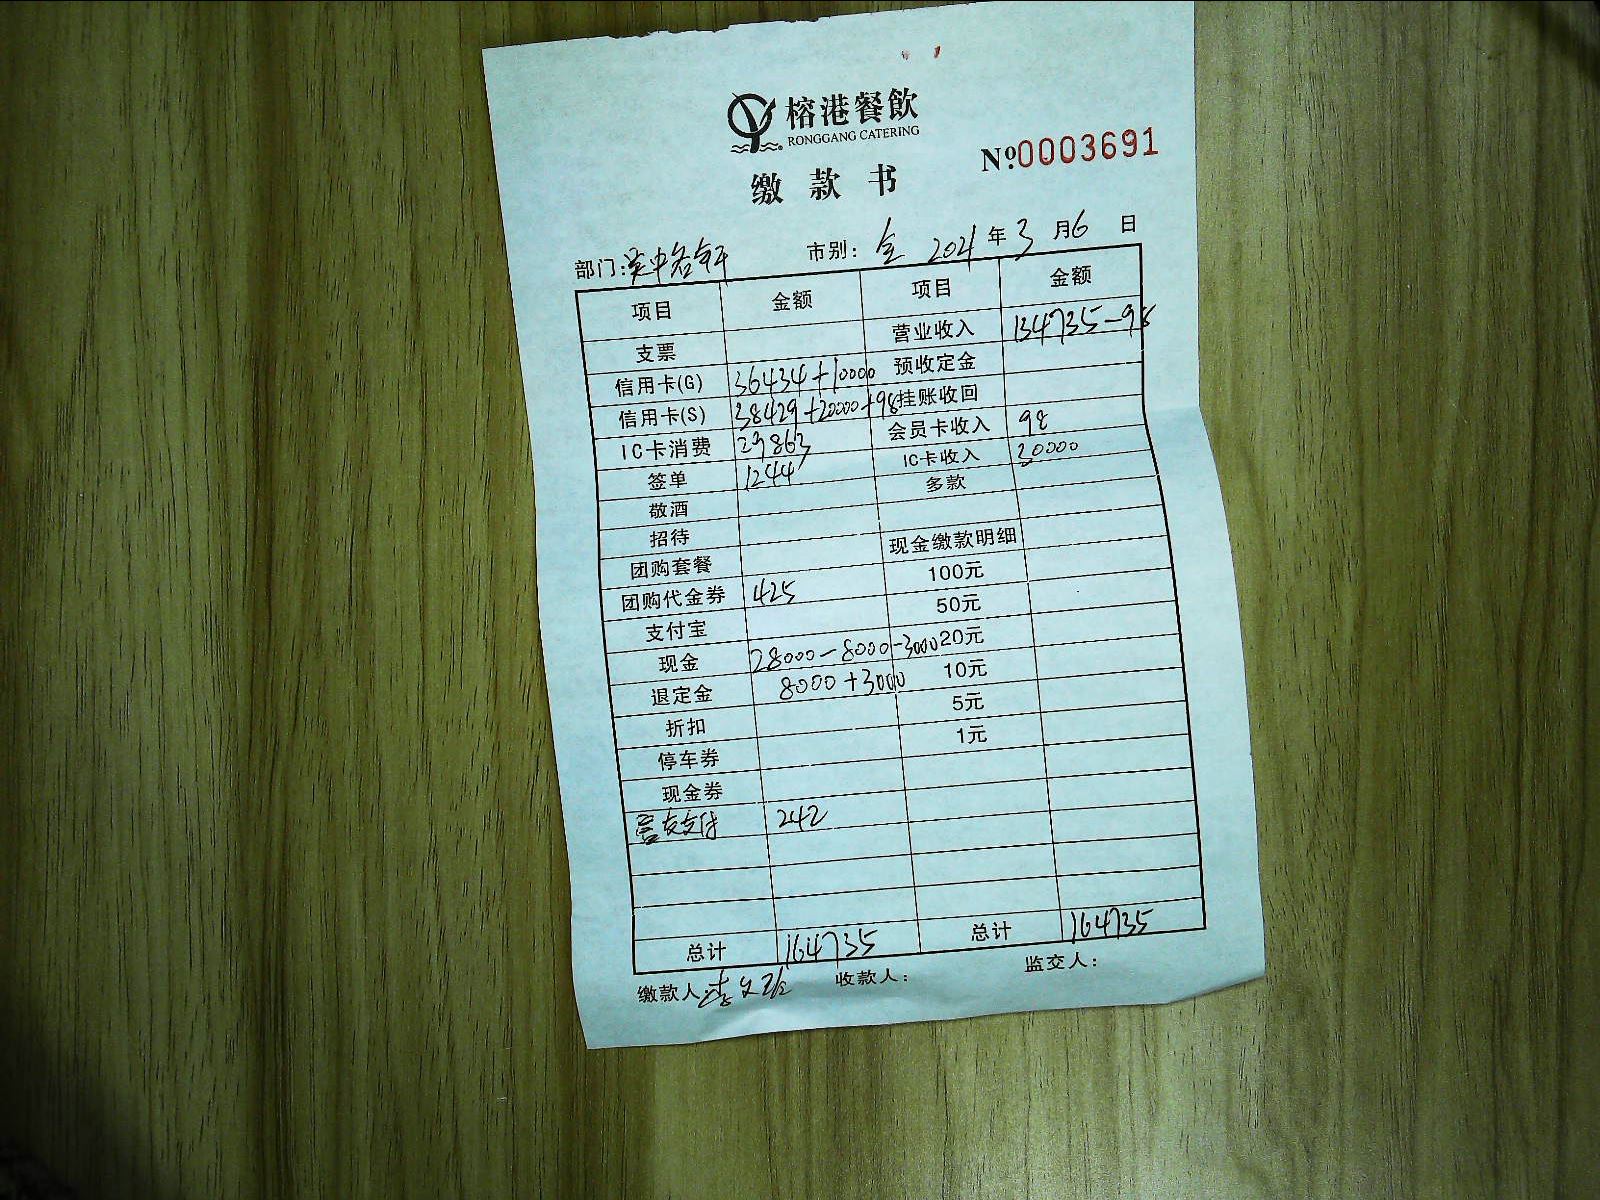 榕港餐飲
RONGGANG CATERING
缴款书
Nº:0003691
部门:吴中名轩 市别:全 2021年3月6日
项目 金额 项目 金额
支票 营业收入 134735-98
信用卡(G) 36434+10000 预收定金
信用卡(S) 38429+20000+98 挂账收回
IC卡消费 29863 会员卡收入 98
签单 1244 IC卡收入 30000
敬酒 多款
招待
团购套餐 现金缴款明细
团购代金券 425 100元
支付宝 50元
现金 28000-8000-3000 20元
退定金 8000+3000 10元
折扣 5元
停车券 1元
现金券
支付 242
总计 164735 总计 164735
缴款人:李文 收款人: 监交人: